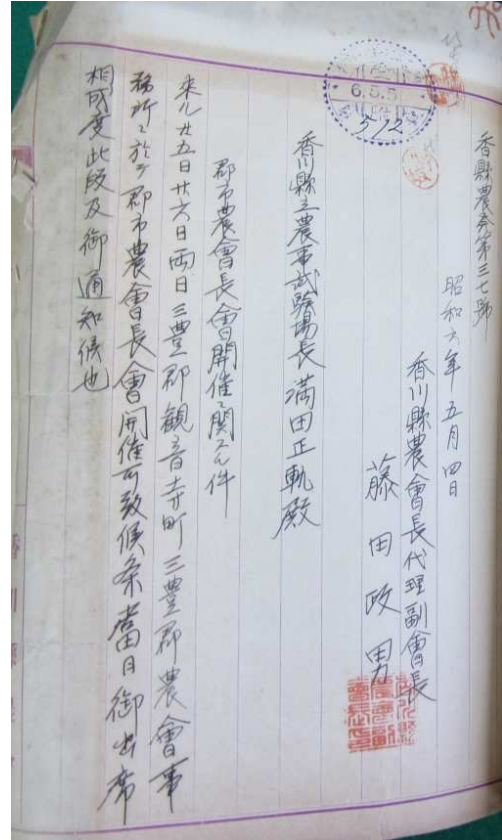 香縣農発第三七號
昭和六年五月四日
香川縣農會長代理副會長
藤田政男
香川縣立農事試驗場長 満田正軌殿
郡市農會長會開催ニ関スル件
来ル廿五日廿六日両日三豊郡観音寺町三豊郡農會事
務所ニ於テ郡市農會長會開催可致候条當日御出席
相成度此段及御通知候也
6.5.5
512